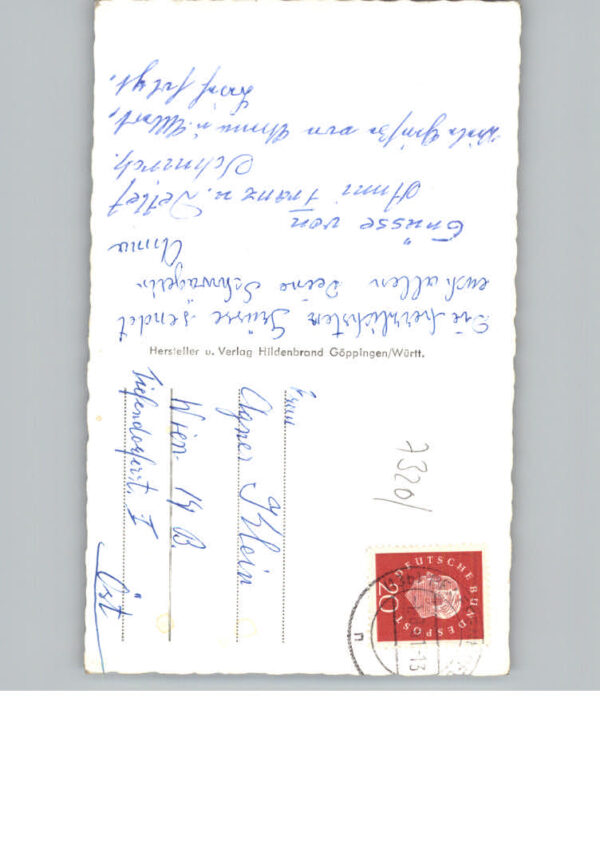 Die herzlichsten Grüsse sendet
euch allen Deine Schwägerin
Anna
Grüsse von
Anni Franz u. Detlef
Schmirch.
Viele Grüße von Anna u. Albert,
Brief folgt.
Hersteller u. Verlag Hildenbrand Göppingen/Württ.
Frau
Agnes Klein
Wien 19 B.
I
Öst
7320/
DEUTSCHE BUNDESPOST
20
-13
n